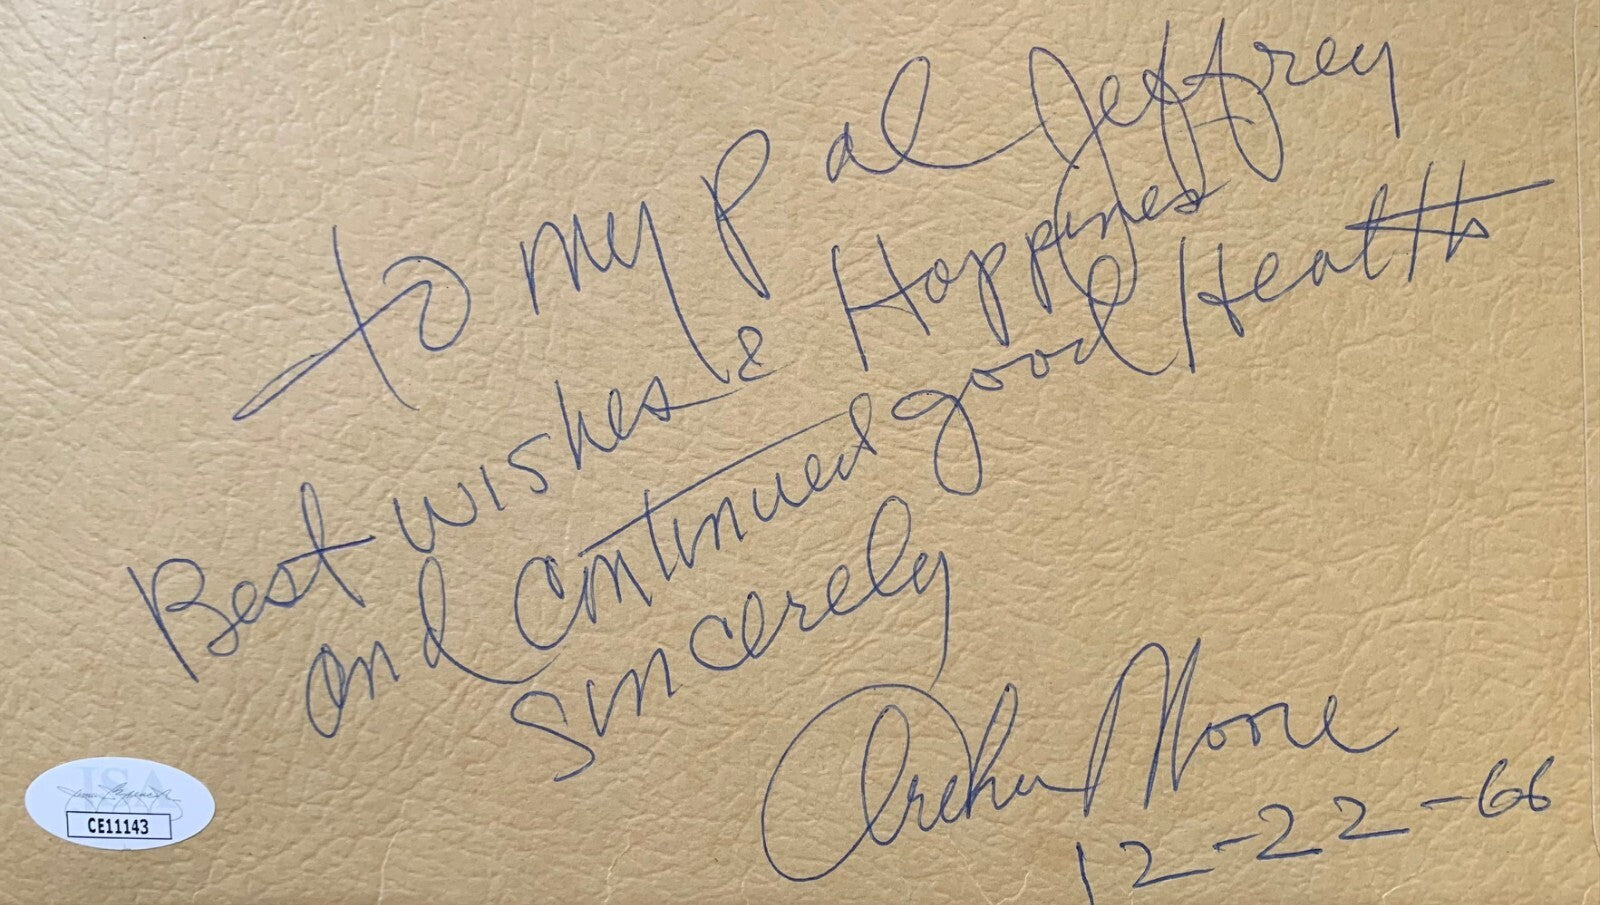 to my pal Jeffrey
Best wishes & Happiness
and continued good Health
Sincerely
Archie Moore
12-22-66
JSA
CE11143